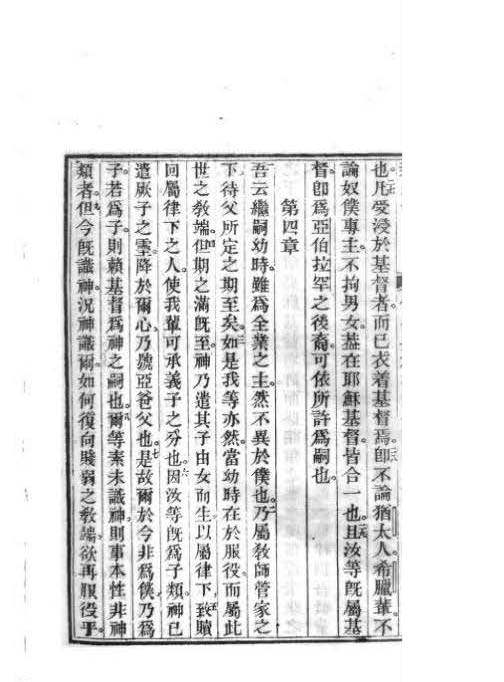 也凡受浸於基督者而已衣着基督焉卽不論猶太人希臘輩不
論奴僕專主不拘男女蓋在耶穌基督皆合一也且汝等旣屬基
督卽爲亞伯拉罕之後裔可依所許爲嗣也
第四章
吾云繼嗣幼時雖爲全業之主然不異於僕也乃屬教師管家之
下待父所定之期至矣如是我等亦然當幼時在於服役而屬此
世之教端但期之滿旣至神乃遣其子由女而生以屬律下致贖
回屬律下之人使我輩可承義子之分也因汝等旣爲子類神已
遣厥子之靈降於爾心乃號亞爸父也是故爾於今非爲僕乃爲
子若爲子則賴基督爲神之嗣也爾等素未識神則事本性非神
類者但今旣識神況神識爾如何復向賤弱之教端欲再服役乎